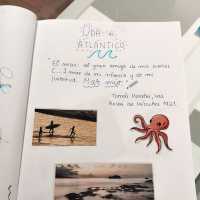 ODA AL
ATLÁNTICO
"El mar: el gran amigo de mis sueños
(...) mar de mi infancia y de mi
juventud... Mar mío!"
Tomás Morales, Las
Rosas de Hércules 1921.